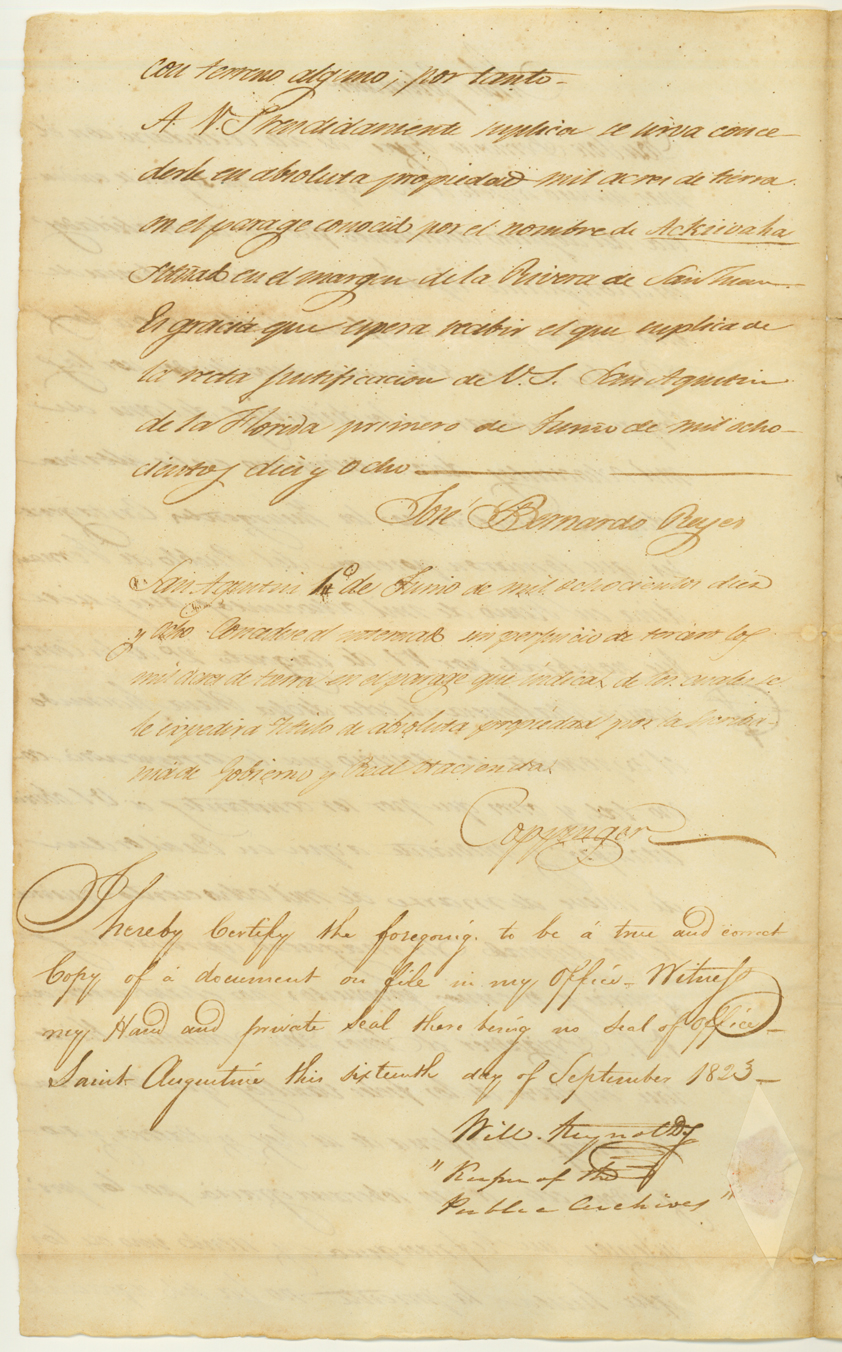 con terreno alguno, por tanto
A V. S. rendidamente suplica se sirva conce-
derle en absoluta propiedad mil acres de tierra
en el parage conocido por el nombre de
situado en el margen de la Rivera de San Juan
Es gracia que espera recibir el que suplica de
la recta justificacion de V. S. San Agustin
de la Florida primero de Junio de mil ocho-
cientos diez y ocho
José Bernardo Reyes
San Agustin de Junio de mil ochocientos diez
y ocho Concedese al interesado sin perjuicio de tercero los
mil acres de tierra en el parage que indica, de los cuales se
le expedira titulo de absoluta propiedad por la Escriba-
nia de Gobierno y Real Hacienda
Coppinger
I hereby Certify the foregoing to be a true and correct
Copy of a document on file in my Office - Witness
my Hand and private seal there being no seal of office -
Saint Augustine this sixteenth day of September 1823 -
Will. Reynolds
"Keeper of the
Public Archives"